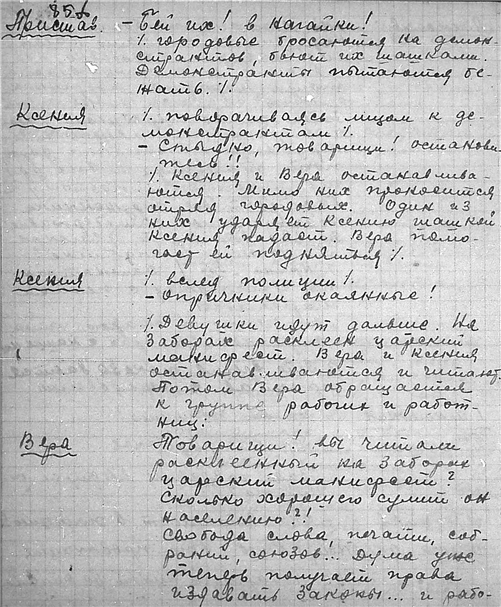 85х
Пристав. – Бей их! в нагайки!
/. городовые бросаются на демон-
странтов, бьют их шашками.
Демонстранты пытаются бе-
жать. /.
Ксения /. поворачиваясь лицом к де-
монстрантам /.
– Стыдно, товарищи! останови-
тесь!!
/. Ксения и Вера останавлива-
ются. Мимо них проносится
отряд городовых. Один из
них ударяет Ксению шашкой
Ксения падает. Вера помо-
гает ей подняться /.
Ксения /. вслед полиции /.
– Опричники окаянные!
/. Девушки идут дальше. На
заборах расклеен царский
манифест. Вера и Ксения
останавливаются и читают.
Потом Вера обращается
к группе рабочих и работ-
ниц:
Вера Товарищи! вы читали
расклеенный на заборах
царский манифест?
Сколько хорошего сулит он
населению?!
Свобода слова, печати, соб-
раний, союзов... Дума уже
теперь получает права
издавать законы... и рабо-